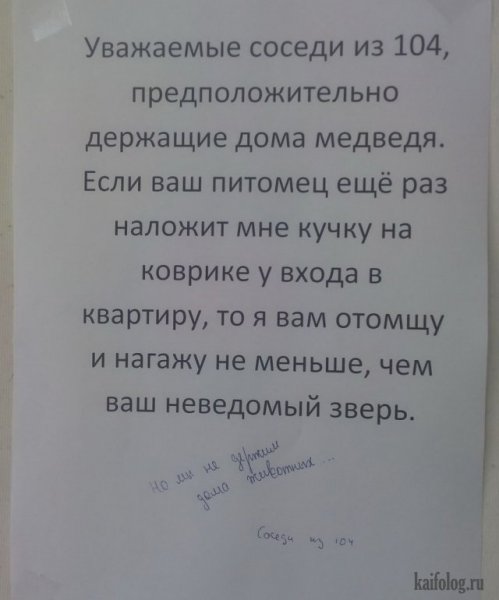 Уважаемые соседи из 104,
предположительно
держащие дома медведя.
Если ваш питомец ещё раз
наложит мне кучку на
коврике у входа в
квартиру, то я вам отомщу
и нагажу не меньше, чем
ваш неведомый зверь.
Но мы не держим
дома животных...
Соседи из 104
kaifolog.ru